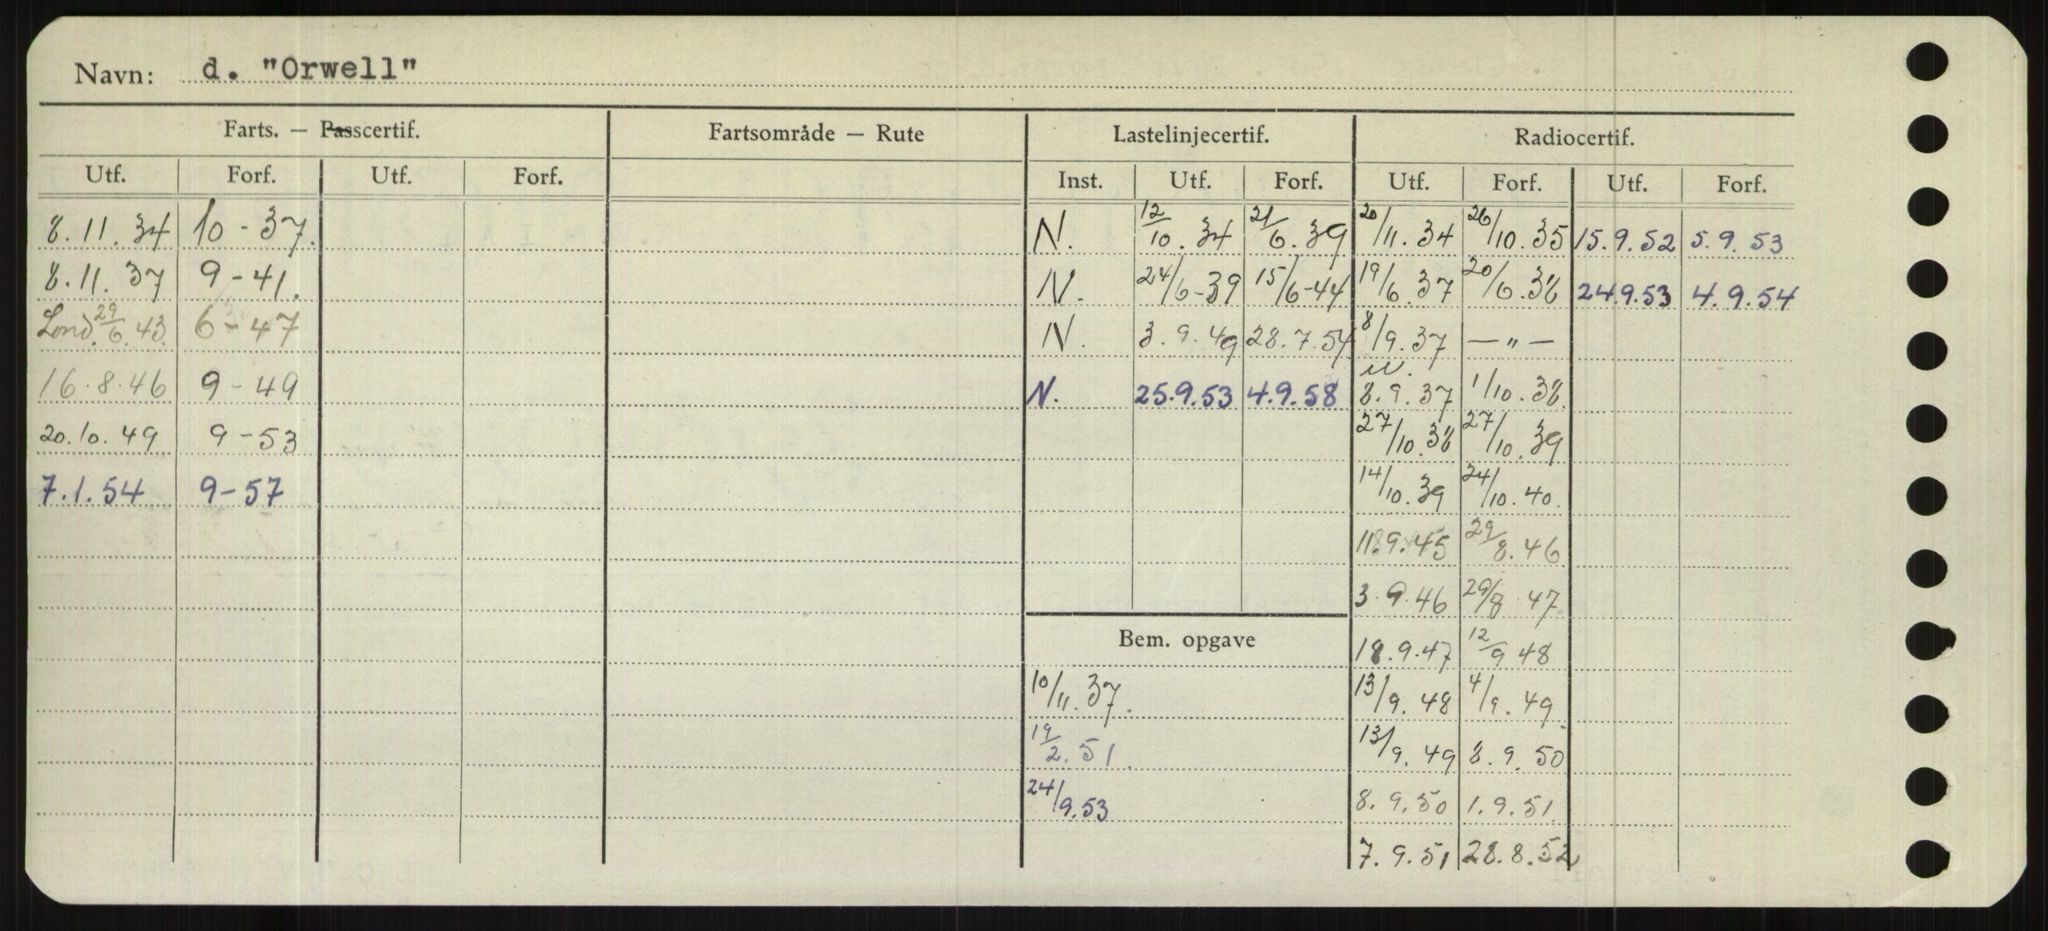 Navn: d. "Orwell"
Farts. — Passcertif. Fartsområde — Rute Lastelinjecertif. Radiocertif.
Utf. Forf. Utf. Forf. Inst. Utf. Forf. Utf. Forf. Utf. Forf.
8.11.34 10-37. N. 12/10.34 21/6.39 20/11.34 26/10.35 15.9.52 5.9.53
8.11.37 9-41. N. 24/6-39 15/6-44 19/6.37 20/6.38 24.9.53 4.9.54
Lond. 29/6.43. 6-47 N. 3.9.49 28.7.54 8/9.37 —"—
16.8.46 9-49 N. 25.9.53 4.9.58 8.9.37 1/10.38.
20.10.49 9-53 27/10.38 27/10.39
7.1.54 9-57 14/10.39 24/10.40.
11.9.45 29/8.46
3.9.46 29/8.47
Bem. opgave 18.9.47 12/9 48
10/11.37. 13/9.48 4/9.49.
19/2.51. 13/9.49 8.9.50
24/9.53 8.9.50 1.9.51
7.9.51 28.8.52